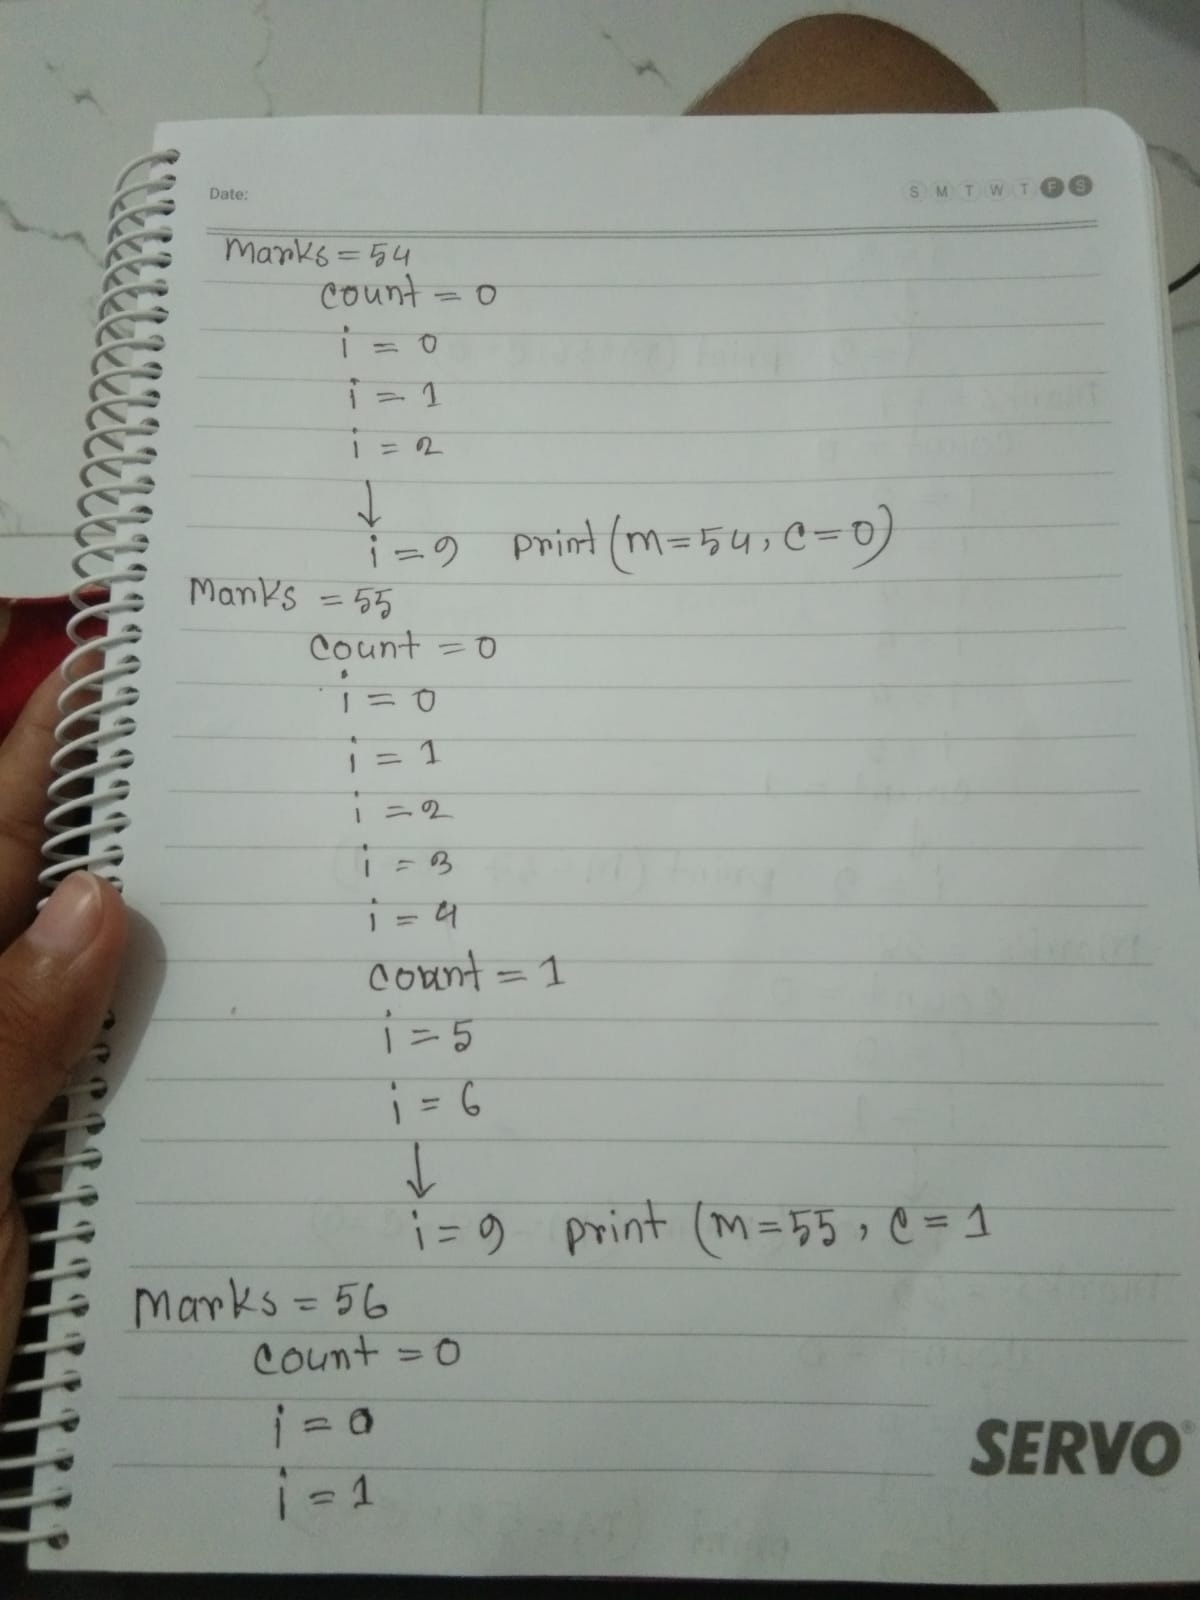 Date:
S M T W T F S
Marks = 54
count = 0
i = 0
i = 1
i = 2
↓
i = 9 print (m = 54, c = 0)
Marks = 55
count = 0
i = 0
i = 1
i = 2
i = 3
i = 4
count = 1
i = 5
i = 6
↓
i = 9 print (m = 55, c = 1
Marks = 56
count = 0
i = 0
i = 1
SERVO®